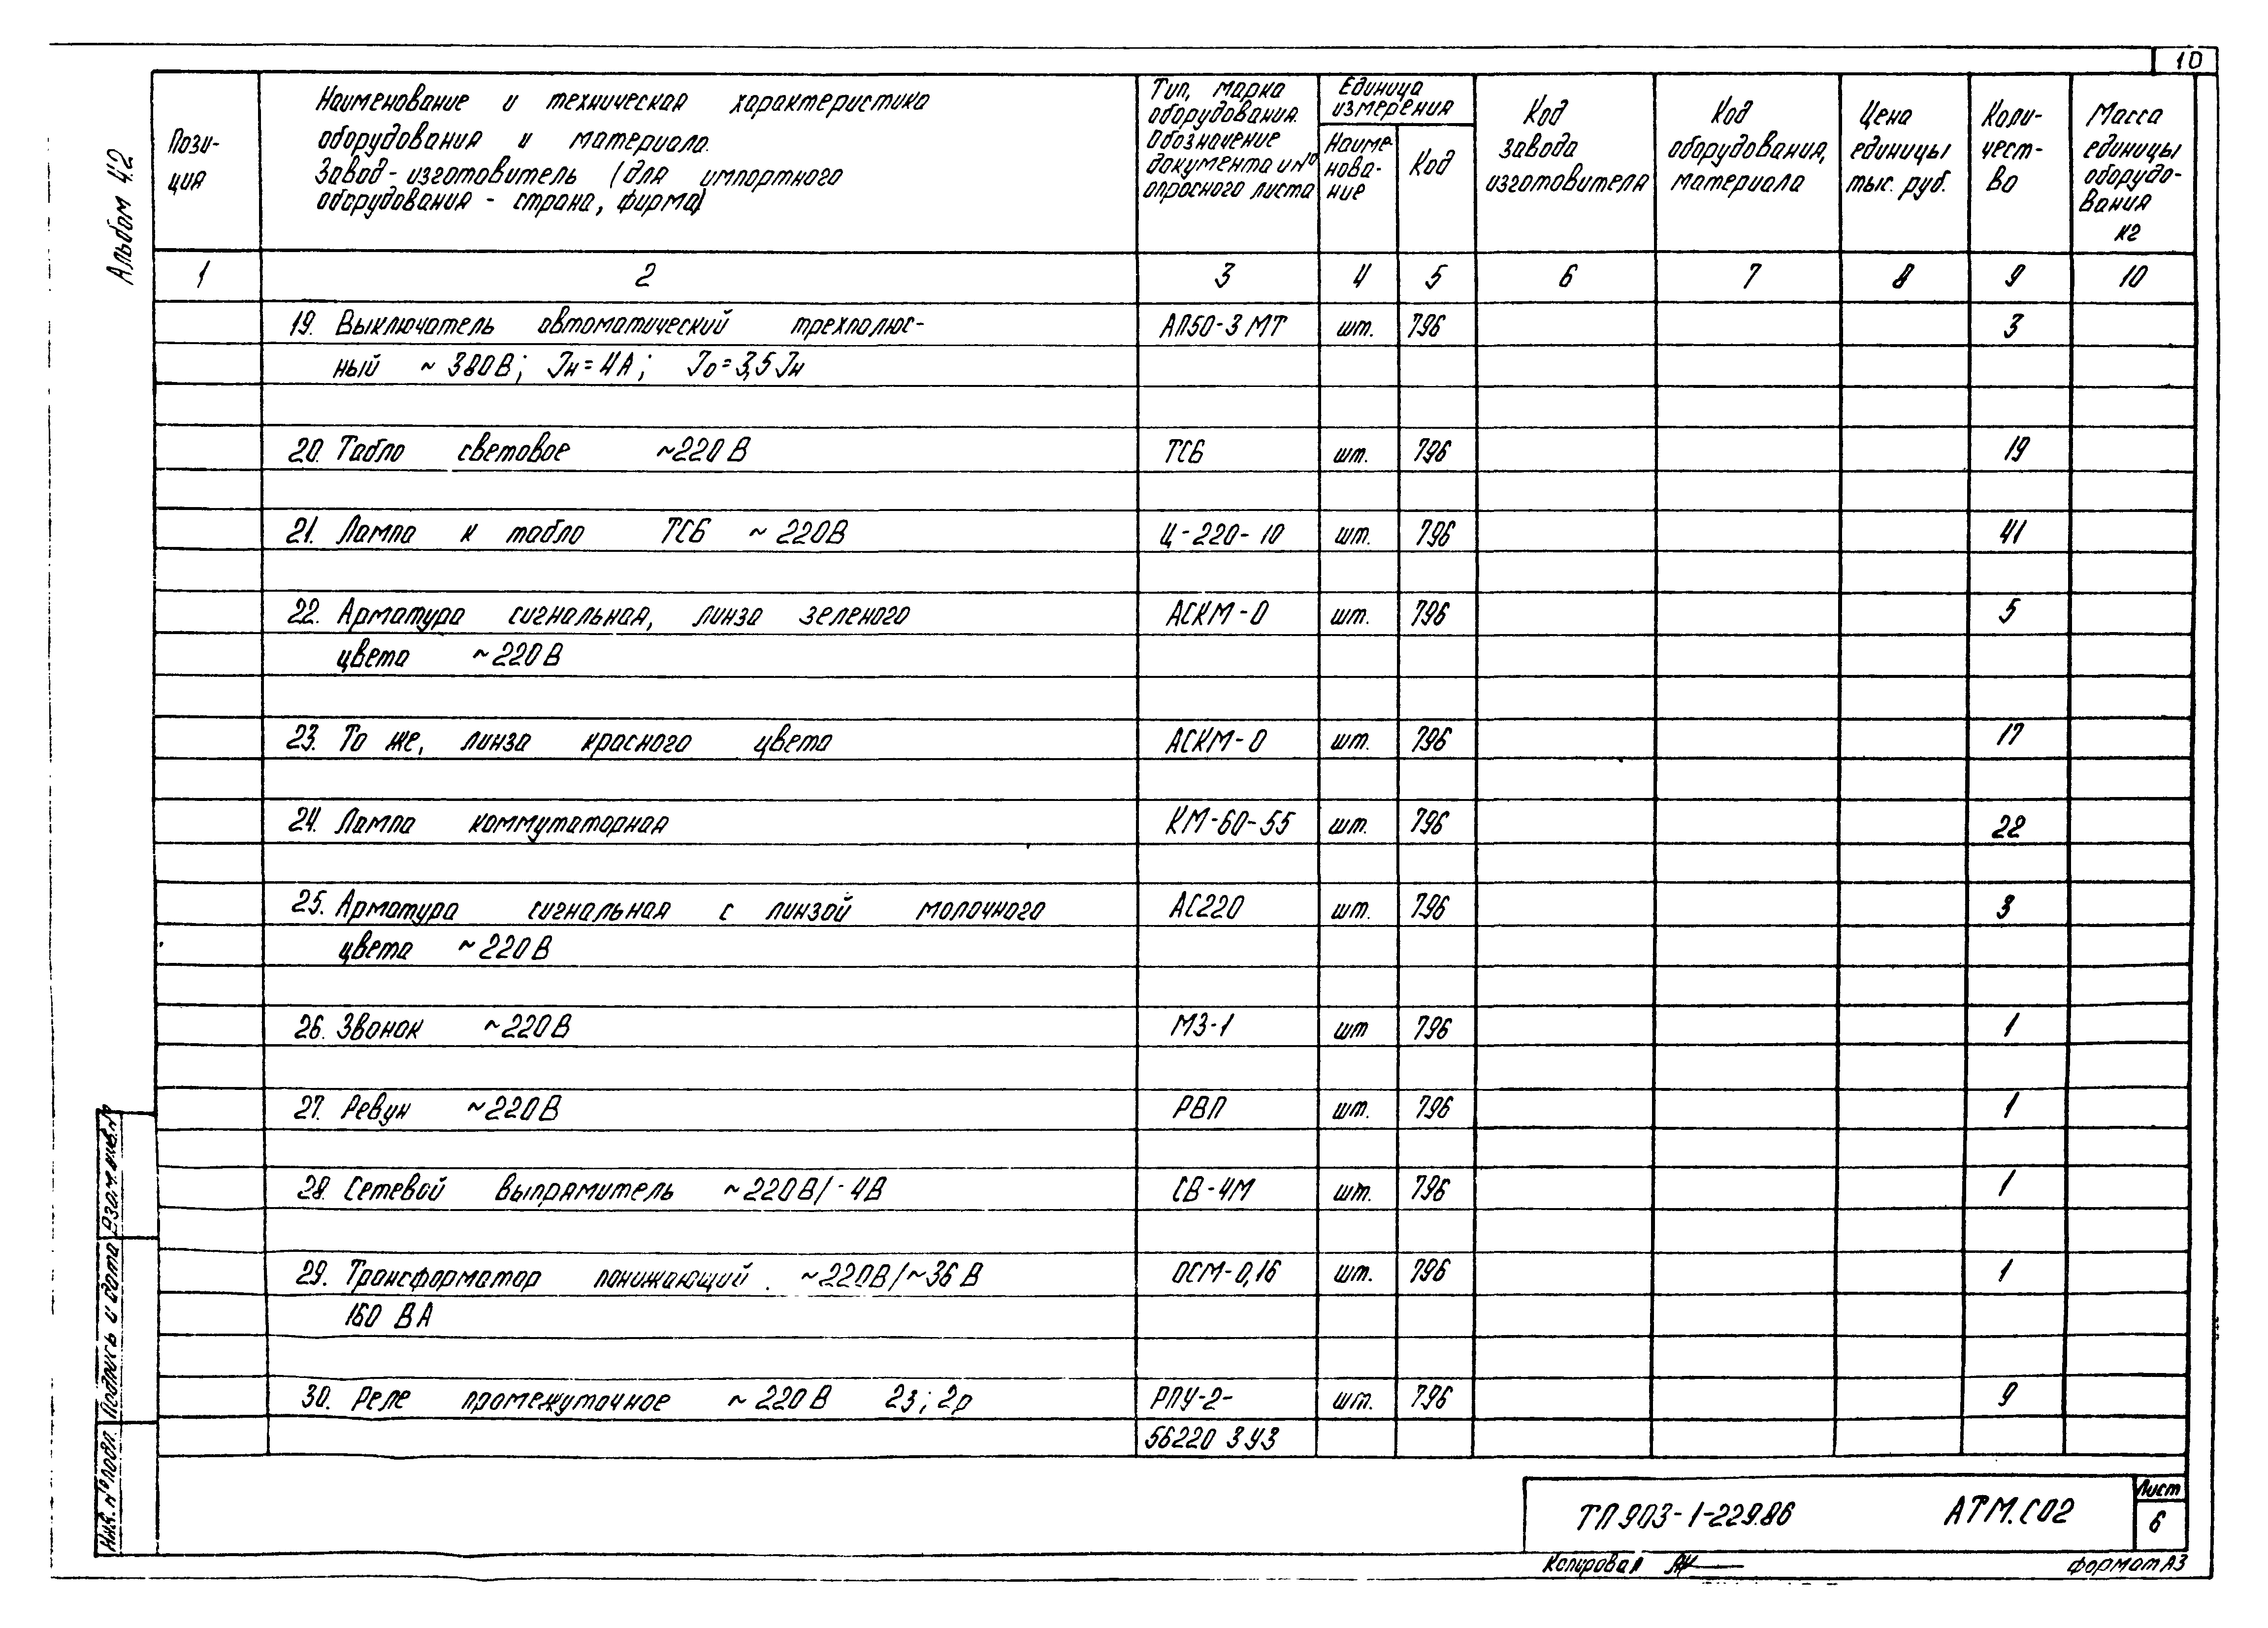 10
Альбом 4.2
Пози-
ция
Наименование и техническая характеристика
оборудования и материала.
Завод-изготовитель (для импортного
оборудования - страна, фирма)
Тип, марка
оборудования.
Обозначение
документа и №
опросного листа
Единица
измерения
Наиме-
нова-
ние
Код
Код
завода
изготовителя
Код
оборудования,
материала
Цена
единицы
тыс. руб.
Коли-
чест-
во
Масса
единицы
оборудо-
вания
кг
1 2 3 4 5 6 7 8 9 10
19. Выключатель автоматический трехполюс- АП50-3МТ шт. 796 3
ный ~ 380В; Iн = 4А; Iо = 3,5 Iн
20. Табло световое ~220В ТСБ шт. 796 19
21. Лампа к табло ТСБ ~ 220В Ц-220-10 шт. 796 41
22. Арматура сигнальная, линза зеленого АСКМ-О шт. 796 5
цвета ~220В
23. То же, линза красного цвета АСКМ-О шт. 796 17
24. Лампа коммутаторная КМ-60-55 шт. 796 22
25. Арматура сигнальная с линзой молочного АС220 шт. 796 3
цвета ~220В
26. Звонок ~220В МЗ-1 шт 796 1
27. Ревун ~220В РВП шт. 796 1
28. Сетевой выпрямитель ~220В/-4В СВ-4М шт. 796 1
29. Трансформатор понижающий. ~220В/~36В ОСМ-0,16 шт. 796 1
160 ВА
30. Реле промежуточное ~220В 2з; 2р РПУ-2- шт. 796 9
56220 3У3
Взам. инв. №
Подпись и дата
Инв. № подл.
ТП 903-1-229.86 АТМ.СО2
Лист
6
Копировал
формат А3